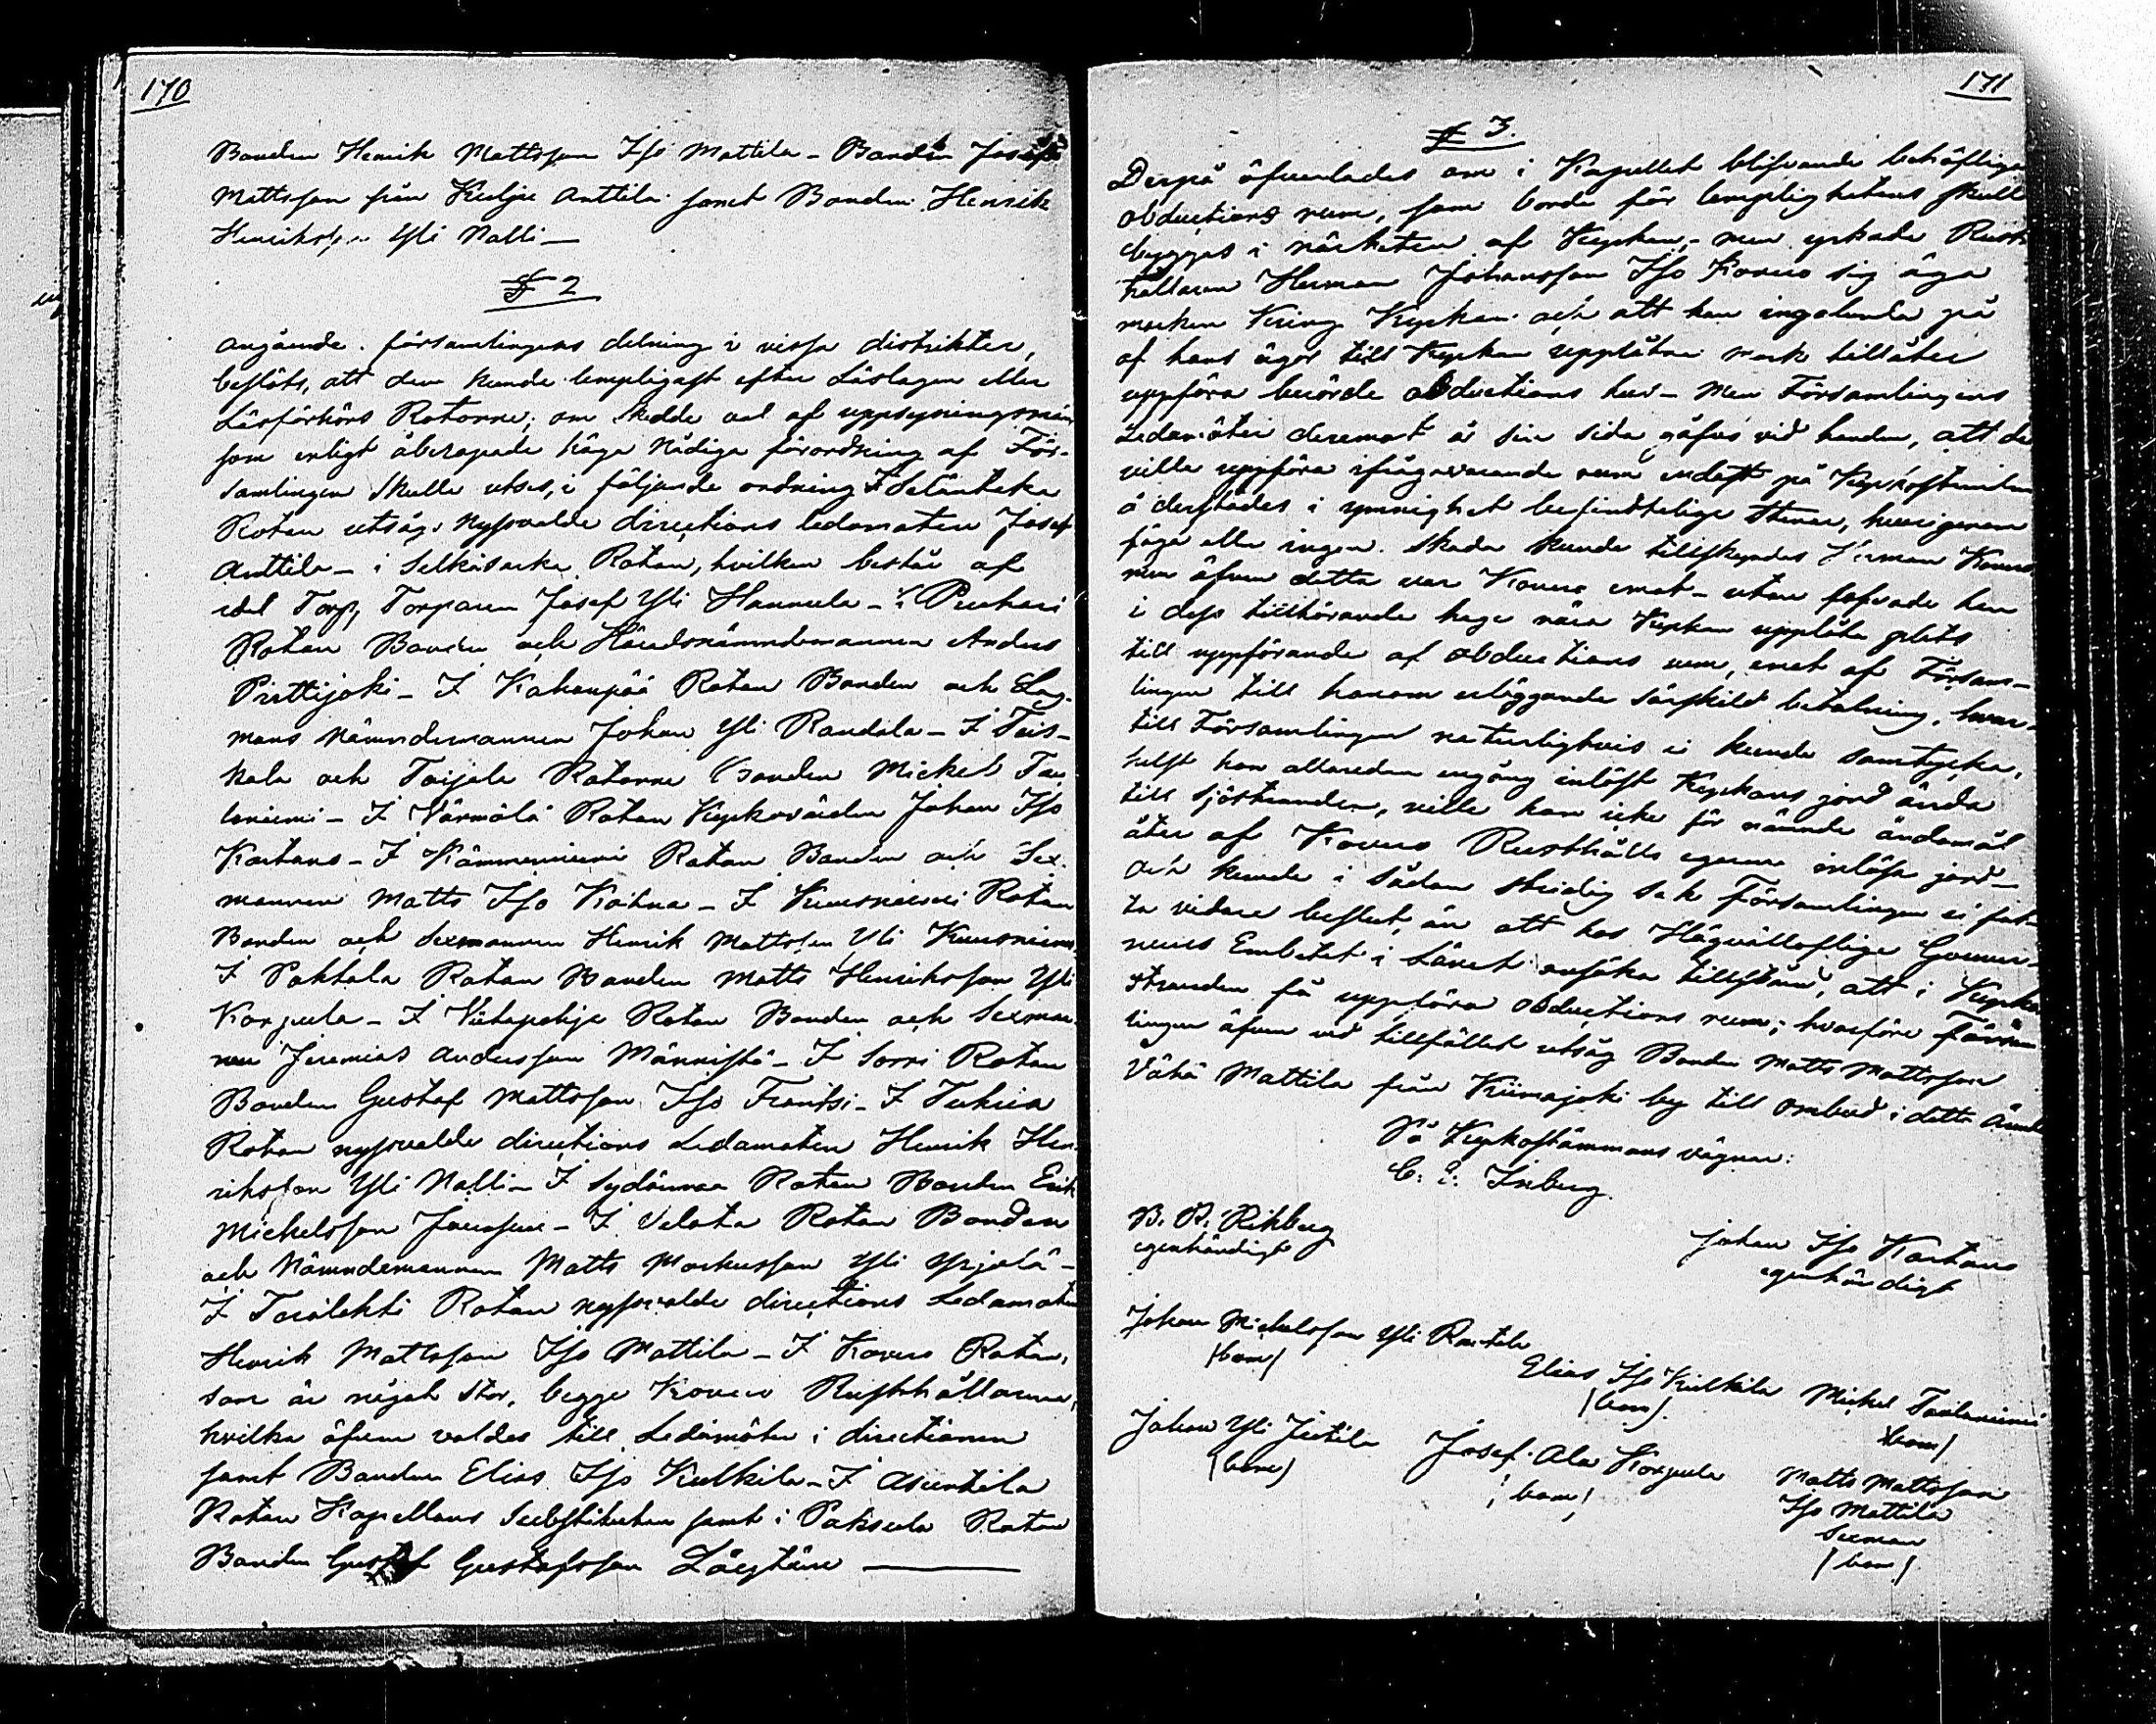 170
Bonden Henrik Mattsson Iso Mattila - Bonden Josef
Mattsson från Kulju Anttila samt Bonden Henrik
Henriksson Yli Nalli —
§ 2
angående församlingens delning i vissa distrikter,
beslöts, att den kunde lempligast efter Läslagen eller
Läsförhörs Rotorne; om skedde val af uppsyningsmän
som enligt åberopade höga Nådiga förordning af För-
samlingen skulle utses, i följande ordning I
Rotan utsågs nyssvalde directions ledamoten Josef
Anttila - i Selkäsarka Rotan, hvilken består af
idel Torp, Torparen Josef Yli Hannula - i
Rotan Bonden och Häradsnämndemannen Anders
Pirttijoki - I Kahanpää Rotan Bonden och Lag-
mans Nämndemannen Johan Yli Randala - I Teis-
kola och Taijala Rotorne Bonden Mickel Taa
laniemi - I Värmälä Rotan Kyrkovärden Johan Iso
Kartano - I Kämmenniemi Rotan Bonden och Sex-
mannen Matts Iso Kaitua - I Kuusniemi Rotan
Bonden och Sexmannen Henrik Mattsson Yli Kuusniemi
I Paktala Rotan Bonden Matts Henriksson Yli
Korpula - I Viitapohja Rotan Bonden och Sexman-
nen Jeremias Andersson Männistö - I Sorri Rotan
Bonden Gustaf Mattsson Iso Frantsi - I Terhiä
Rotan nyssvalde directions Ledamoten Henrik Hen-
riksson Yli Nalli - I Sydänmaa Rotan Bonden Erik
Michelsson - I Velata Rotan Bonden
och Nämndemannen Matts Markusson Yli
I Rotan nyssvalde directions Ledamoten
Henrik Mattsson Iso Mattila - I Kovero Rotan,
som är något stor, begge Kovero Rusthållarne,
hvilka äfven valdes till Ledamöter i directionen
samt Bonden Elias Iso Kulkkila - I Asuntila
Rotan Kapellans Substituten samt i Paksula Rotan
Bonden Gustaf Gustafsson Löytäne —
171
§ 3.
Derpå öfverlades om i Kapellet blifvande behöfliga
obductions rum, som borde för lemplighetens skull
byggas i närheten af Kyrkan, - men yrkade Rust-
hållaren Herman Johansson Iso Kovero sig äga
marken kring Kyrkan och att han ingalunda på
af hans ägor till Kyrkan upplåtne mark tillåter
uppföra berörde obductions hus - Men Församlingens
Ledamöter deremot å sin sida gåfvo vid handen, att de
ville uppföra ifrågavarande rum endast på Kyrkostranden
å derstädes i ymnighet befindtelige stenar, hvarigenom
föga eller ingen skada kunde tillskyndas Herman Kovero
men äfven detta var Kovero emot - utan lofvade han
i dess tillhörande hage nära Kyrkan upplåta plats
till uppförande af obductions rum, emot af Försam-
lingen till honom erläggande särskild betalning, hvar-
till Församlingen naturligtvis ei kunde samtycka,
helst hon allaredan engång inlöst Kyrkans jord ända
till sjöstranden, ville hon icke för nämnde ändamål
åter af Kovero Rusthålls egarne inlösa jord -
och kunde i sådan stridig sak Församlingen ei fat-
ta vidare beslut, än att hos Högvällofliga Gouver-
neurs Embetet i Länet ansöka tillstånd, att i Kyrko
stranden få uppföra obductions rum; hvarföre Försam
lingen äfven vid tillfället utsåg Bonden Matts Mattsson
Vähä Mattila från Kiimajoki by till ombud i detta
På Kyrkostämmans vägnar:
C. E. Inberg.
B. R. Rihberg
egenhändigt
Johan Iso Kartano
egenhändigt
Johan Michelsson Yli
(bom)
Elias Iso Kulkkila
(bom)
Mickel Taalaniemi
(bom)
Johan Yli Juttila
(bom)
Josef Ala Korpula
(bom)
Matts Mattsson
Iso Mattila
Sexman
(bom)